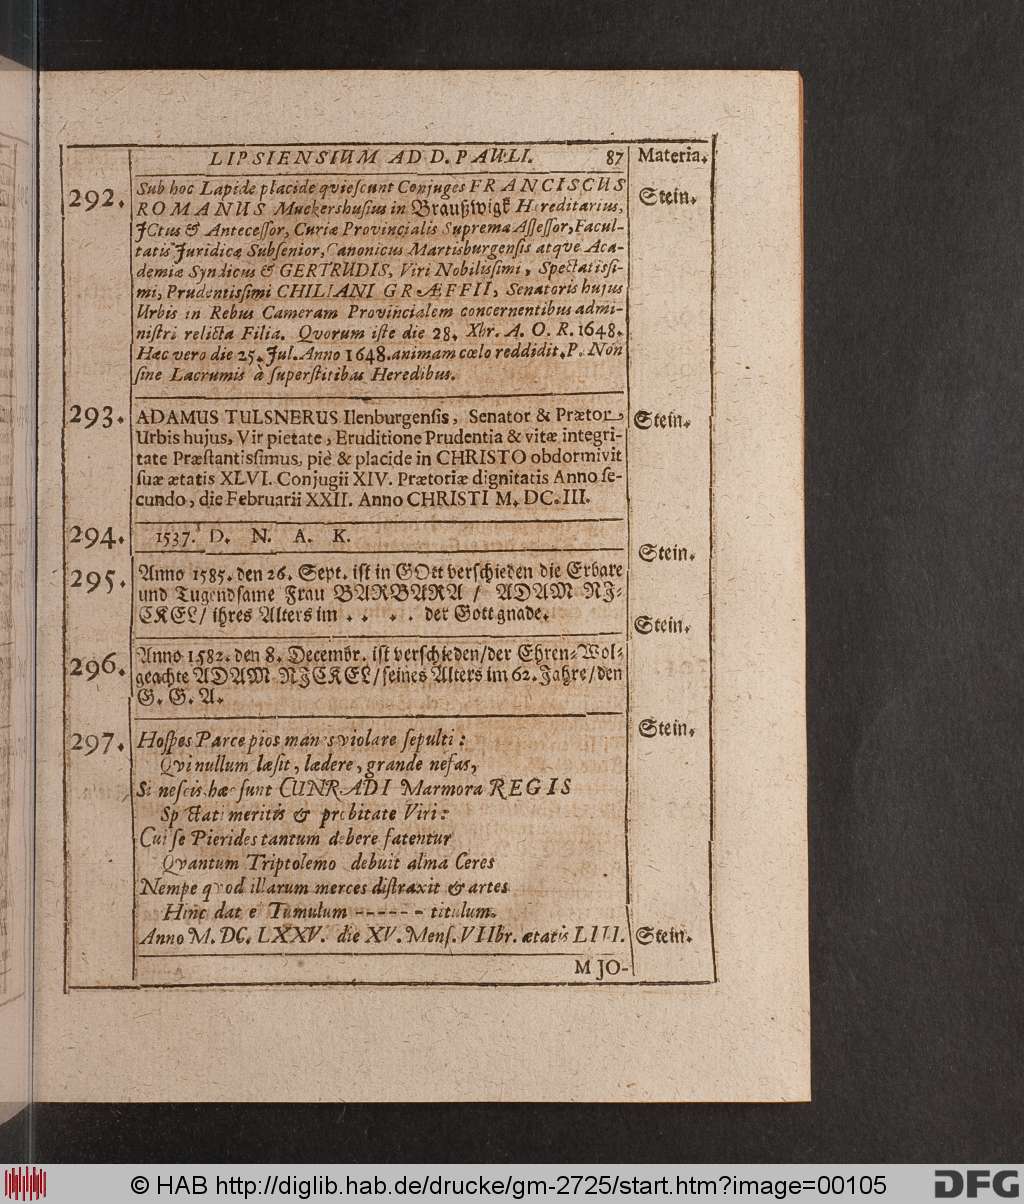 LIPSIENSIUM AD D. PAULI. 87 Materia.
292. Sub hoc Lapide placide qvieſcunt Conjuges FRANCISCUS Stein.
ROMANUS Muckershuſius in Braußwigk Hereditarius,
JCtus & Anteceſſor, Curiæ Provincialis Suprema Aſſeſſor, Facul-
tatis Juridicæ Subſenior, Canonicus Martisburgenſis atqve Aca-
demiæ Syndicus & GERTRUDIS, Viri Nobiliſſimi, Spectatiſſi-
mi, Prudentiſſimi CHILIANI GRÆFFII, Senatoris hujus
Urbis in Rebus Cameram Provincialem concernentibus admi-
niſtri relicta Filia. Qvorum iſte die 28. Xbr. A. O. R. 1648.
Hæc vero die 25. Jul. Anno 1648. animam cœlo reddidit. P. Non
ſine Lacrumis à ſuperſtitibas Heredibus.
293. ADAMUS TULSNERUS Ilenburgenſis, Senator & Prætor, Stein.
Urbis hujus, Vir pietate, Eruditione Prudentia & vitæ integri-
tate Præſtantiſſimus, piè & placide in CHRISTO obdormivit
ſuæ ætatis XLVI. Conjugii XIV. Prætoriæ dignitatis Anno ſe-
cundo, die Februarii XXII. Anno CHRISTI M. DC. III.
294. 1537. D. N. A. K. Stein.
295. Anno 1585. den 26. Sept. iſt in GOtt verſchieden die Erbare
und Tugendſame Frau BARBARA / ADAM NI-
CKEL/ ihres Alters im . . . . der Gott gnade. Stein.
296. Anno 1582. den 8. Decembr. iſt verſchieden/der Ehren-Wol-
geachte ADAM NICKEL/ſeines Alters im 62. Jahre/den
G. G. A. Stein.
297. Hoſpes Parce pios manes violare ſepulti:
Qvi nullum læſit, lædere, grande nefas,
Si neſcis hæc ſunt CUNRADI Marmora REGIS
Spectati meritis & probitate Viri:
Cui ſe Pierides tantum debere fatentur
Qvantum Triptolemo debuit alma Ceres
Nempe qvod illarum merces diſtraxit & artes
Hinc dat e Tumulum - - - - - - titulum.
Anno M. DC. LXXV. die XV. Menſ. VIIbr. ætatis LIII. Stein.
M JO-
© HAB http://diglib.hab.de/drucke/gm-2725/start.htm?image=00105
DFG